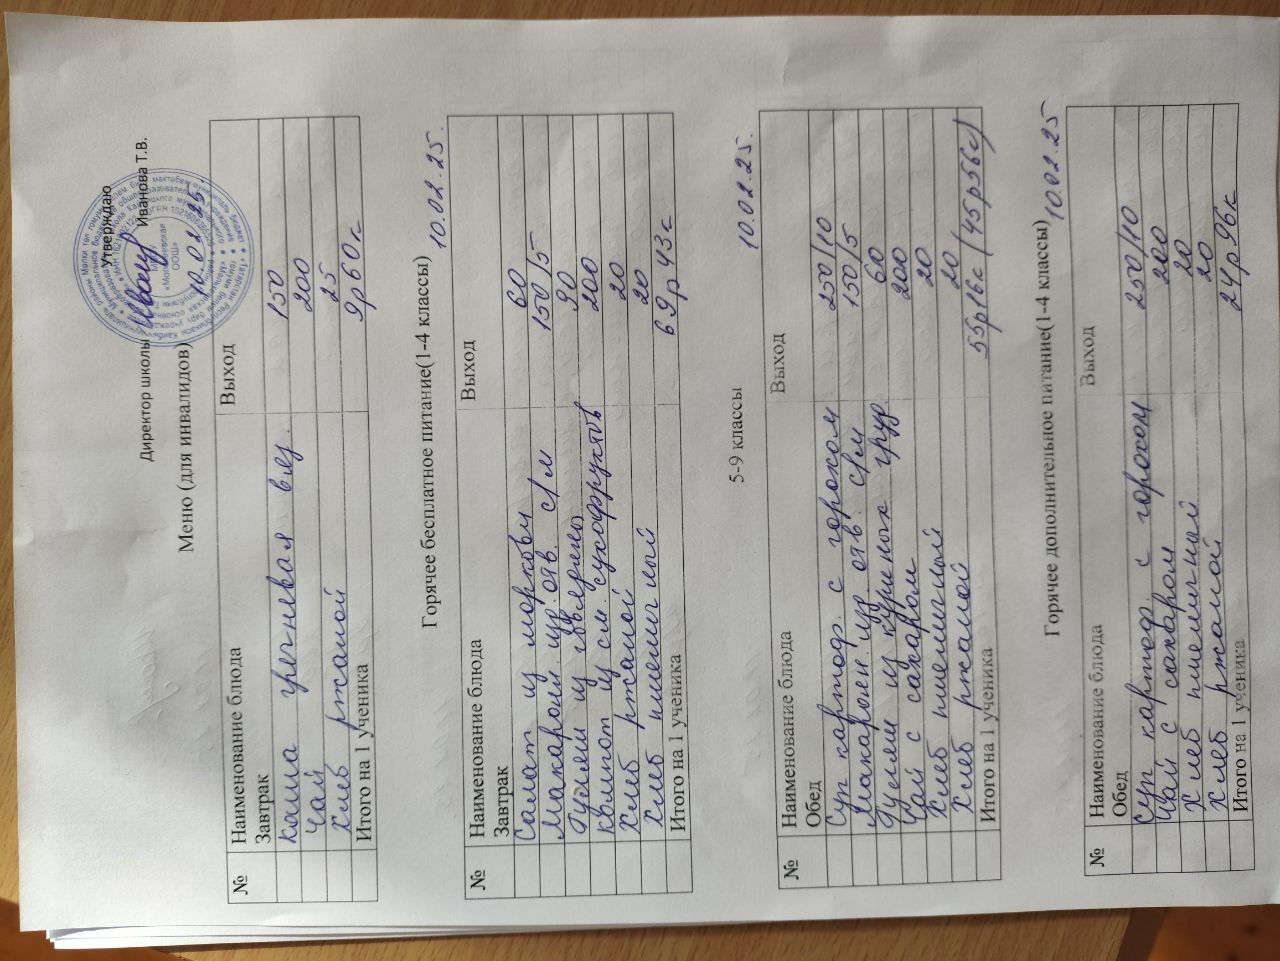 Утверждаю
Директор школы Иванова Т.В.
10.02.25.
Меню (для инвалидов)
№ Наименование блюда Выход
Завтрак
Каша гречневая вяз. 150
Чай 200
Хлеб ржаной 25
Итого на 1 ученика 9р60к
Горячее бесплатное питание(1-4 классы) 10.02.25.
№ Наименование блюда Выход
Завтрак
Салат из моркови 60
Макарон. изд. отв. с/м 150/5
Гуляш из говядины 90
Компот из см. сухофруктов 200
Хлеб ржаной 20
Хлеб пшеничный 20
Итого на 1 ученика 69р43к
5-9 классы 10.02.25.
№ Наименование блюда Выход
Обед
Суп картоф. с горохом 250/10
Макарон. изд. отв. с/м 150/5
Гуляш из куриных груд. 60
Чай с сахаром 200
Хлеб пшеничный 20
Хлеб ржаной 20
Итого на 1 ученика 55р16к (45р56к)
Горячее дополнительное питание(1-4 классы) 10.02.25
№ Наименование блюда Выход
Обед
Суп картоф. с горохом 250/10
Чай с сахаром 200
Хлеб пшеничный 20
Хлеб ржаной 20
Итого на 1 ученика 24р96к